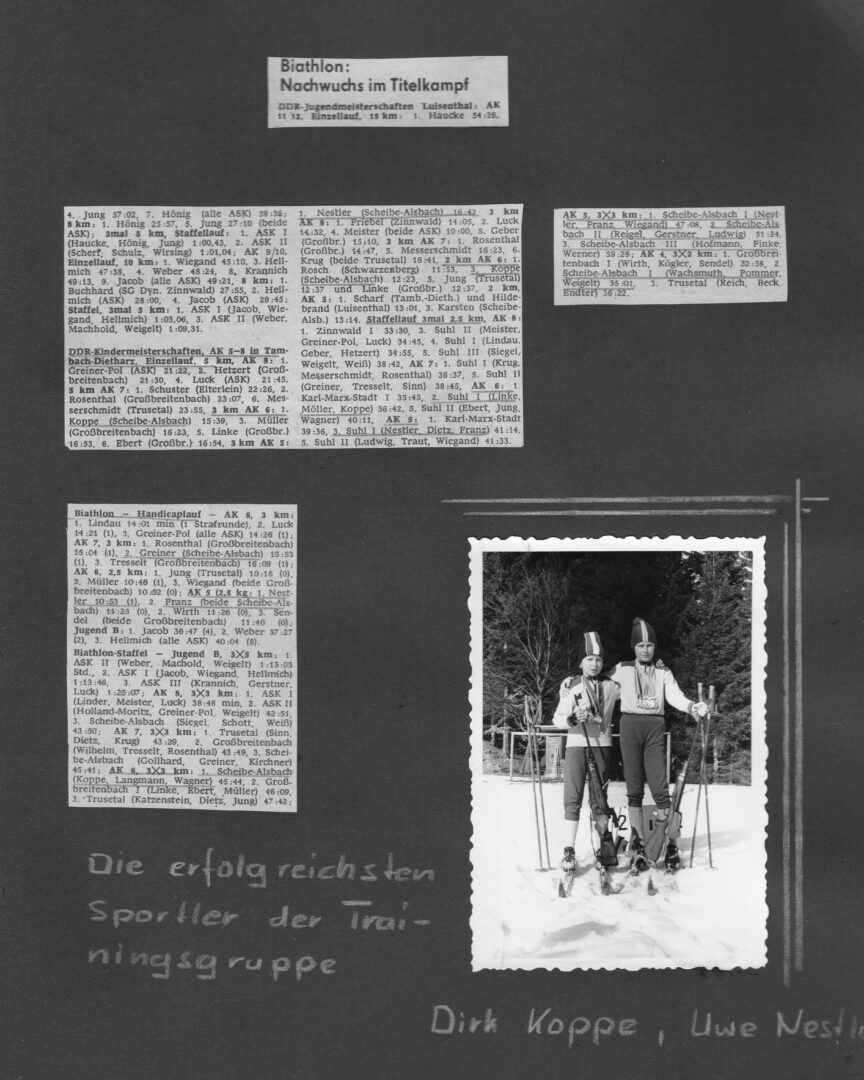 Biathlon:
Nachwuchs im Titelkampf
DDR-Jugendmeisterschaften Luisenthal: AK
11/12, Einzellauf, 15 km: 1. Haucke 54:26,
4. Jung 57:02, 7. Hönig (alle ASK) 58:36;
8 km: 1. Hönig 25:57, 5. Jung 27:10 (beide
ASK); 3mal 5 km, Staffellauf: 1. ASK I
(Haucke, Hönig, Jung) 1:00,43, 2. ASK II
(Scherf, Schulz, Wirsing) 1:01,04; AK 9/10,
Einzellauf, 10 km: 1. Wiegand 45:10, 3. Hell-
mich 47:38, 4. Weber 48:24, 8. Krannich
49:13, 9. Jacob (alle ASK) 49:21, 8 km: 1.
Buchhard (SG Dyn. Zinnwald) 27:55, 2. Hell-
mich (ASK) 28:00, 4. Jacob (ASK) 29:45;
Staffel, 3mal 5 km: 1. ASK I (Jacob, Wie-
gand, Hellmich) 1:03,06, 3. ASK II (Weber,
Machhold, Weigelt) 1:09,31.
DDR-Kindermeisterschaften, AK 5–8 in Tam-
bach-Dietharz, Einzellauf, 5 km, AK 8: 1.
Greiner-Pol (ASK) 21:22, 2. Hetzert (Groß-
breitenbach) 21:30, 4. Luck (ASK) 21:45,
5 km AK 7: 1. Schuster (Elterlein) 22:26, 2.
Rosenthal (Großbreitenbach) 23:07, 6. Mes-
serschmidt (Trusetal) 23:55, 3 km AK 6: 1.
Koppe (Scheibe-Alsbach) 15:39, 3. Müller
(Großbreitenbach) 16:23, 5. Linke (Großbr.)
16:53, 6. Ebert (Großbr.) 16:54, 3 km AK 5:
1. Nestler (Scheibe-Alsbach) 16:42, 3 km
AK 8: 1. Friebel (Zinnwald) 14:05, 2. Luck
14:32, 4. Meister (beide ASK) 10:00, 5. Geber
(Großbr.) 15:10, 3 km AK 7: 1. Rosenthal
(Großbr.) 14:47, 5. Messerschmidt 16:23, 6.
Krug (beide Trusetal) 16:41, 2 km AK 6: 1.
Rosch (Schwarzenberg) 11:53, 3. Koppe
(Scheibe-Alsbach) 12:23, 5. Jung (Trusetal)
12:37 und Linke (Großbr.) 12:37, 2 km,
AK 5: 1. Scharf (Tamb.-Dieth.) und Hilde-
brand (Luisenthal) 13:01, 3. Karsten (Scheibe-
Alsb.) 13:14. Staffellauf 3mal 2,5 km, AK 8:
1. Zinnwald I 33:30, 3. Suhl II (Meister,
Greiner-Pol, Luck) 34:45, 4. Suhl I (Lindau,
Geber, Hetzert) 34:55, 5. Suhl III (Siegel,
Weigelt, Weiß) 38:42, AK 7: 1. Suhl I (Krug,
Messerschmidt, Rosenthal) 36:37, 5. Suhl II
(Greiner, Tresselt, Sinn) 38:45, AK 6: 1.
Karl-Marx-Stadt I 35:45, 2. Suhl I (Linke,
Möller, Koppe) 36:42, 5. Suhl II (Ebert, Jung,
Wagner) 40:11, AK 5: 1. Karl-Marx-Stadt
39:36, 3. Suhl I (Nestler, Dietz, Franz) 41:14,
5. Suhl II (Ludwig, Traut, Wiegand) 41:33.
AK 5, 3×3 km: 1. Scheibe-Alsbach I (Nest-
ler, Franz, Wiegand) 47:08, 2. Scheibe-Als-
bach II (Reigel, Gerstner, Ludwig) 51:24,
3. Scheibe-Alsbach III (Hofmann, Finke,
Werner) 59:28; AK 4, 3×2 km: 1. Großbrei-
tenbach I (Wirth, Kögler, Sendel) 32:56, 2.
Scheibe-Alsbach I (Wachsmuth, Pommer,
Weigelt) 35:01, 3. Trusetal (Reich, Beck,
Endter) 36:22.
Biathlon – Handicaplauf – AK 8, 3 km:
1. Lindau 14:01 min (1 Strafrunde), 2. Luck
14:21 (1), 3. Greiner-Pol (alle ASK) 14:26 (1);
AK 7, 3 km: 1. Rosenthal (Großbreitenbach)
15:04 (1), 2. Greiner (Scheibe-Alsbach) 15:53
(1), 3. Tresselt (Großbreitenbach) 16:09 (1);
AK 6, 2,5 km: 1. Jung (Trusetal) 10:16 (0),
2. Müller 10:46 (1), 3. Wiegand (beide Groß-
breitenbach) 10:52 (0); AK 5 (2,5 kg: 1. Nest-
ler 10:53 (1), 2. Franz (beide Scheibe-Als-
bach) 11:25 (0), 2. Wirth 11:26 (0), 3. Sen-
del (beide Großbreitenbach) 11:40 (0);
Jugend B: 1. Jacob 36:47 (4), 2. Weber 37:27
(2), 3. Hellmich (alle ASK) 40:04 (8).
Biathlon-Staffel – Jugend B, 3×5 km: 1.
ASK II (Weber, Machold, Weigelt) 1:13:03
Std., 2. ASK I (Jacob, Wiegand, Hellmich)
1:13:46, 3. ASK III (Krannich, Gerstner,
Luck) 1:25:07; AK 8, 3×3 km: 1. ASK I
(Linder, Meister, Luck) 38:48 min, 2. ASK II
(Holland-Moritz, Greiner-Pol, Weigelt) 42:51,
3. Scheibe-Alsbach (Siegel, Schott, Weiß)
43:50; AK 7, 3×3 km: 1. Trusetal (Sinn,
Dietz, Krug) 43:29, 2. Großbreitenbach
(Wilhelm, Tresselt, Rosenthal) 43:49, 3. Schei-
be-Alsbach (Gollhard, Greiner, Kirchner)
45:41; AK 6, 3×3 km: 1. Scheibe-Alsbach
(Koppe, Langmann, Wagner) 45:44, 2. Groß-
breitenbach I (Linke, Ebert, Müller) 46:09,
3. Trusetal (Katzenstein, Dietz, Jung) 47:42;
Die erfolgreichsten
Sportler der Trai-
ningsgruppe
Dirk Koppe, Uwe Nestle